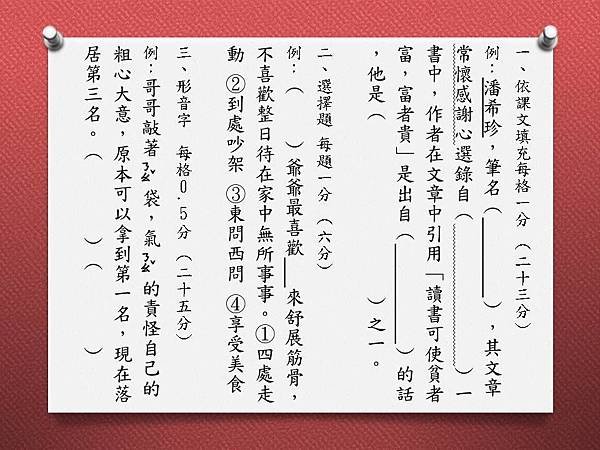 一、依課文填充每格一分（二十三分）
例：潘希珍，筆名（　　　），其文章
常懷感謝心選錄自（　　　　　　）一
書中，作者在文章中引用「讀書可使貧者
富，富者貴」是出自（　　　　）的話
，他是（　　　　　　）之一。
二、選擇題 每題一分（六分）
例：（　　）爺爺最喜歡＿＿來舒展筋骨，
不喜歡整日待在家中無所事事。①四處走
動 ②到處吵架 ③東問西問 ④享受美食
三、形音字 每格0.5分（二十五分）
例：哥哥敲著ㄋㄠˇ袋，氣ㄋㄠˇ的責怪自己的
粗心大意，原本可以拿到第一名，現在落
居第三名。（　　　）（　　　）